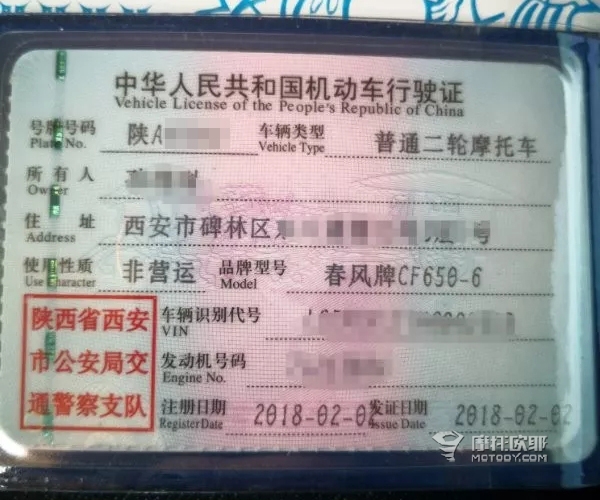 中华人民共和国机动车行驶证
Vehicle License of the People's Republic of China
号牌号码 陕A 车辆类型 普通二轮摩托车
Plate No. Vehicle Type
所有人
Owner
住址 西安市碑林区 号
Address
使用性质 非营运 品牌型号 春风牌CF650-6
Use Character Model
陕西省西安 车辆识别代号
VIN
市公安局交 发动机号码
Engine No.
通警察支队 注册日期 2018-02-02 发证日期 2018-02-02
Register Date Issue Date
摩托欧耶
MOTOOY.COM